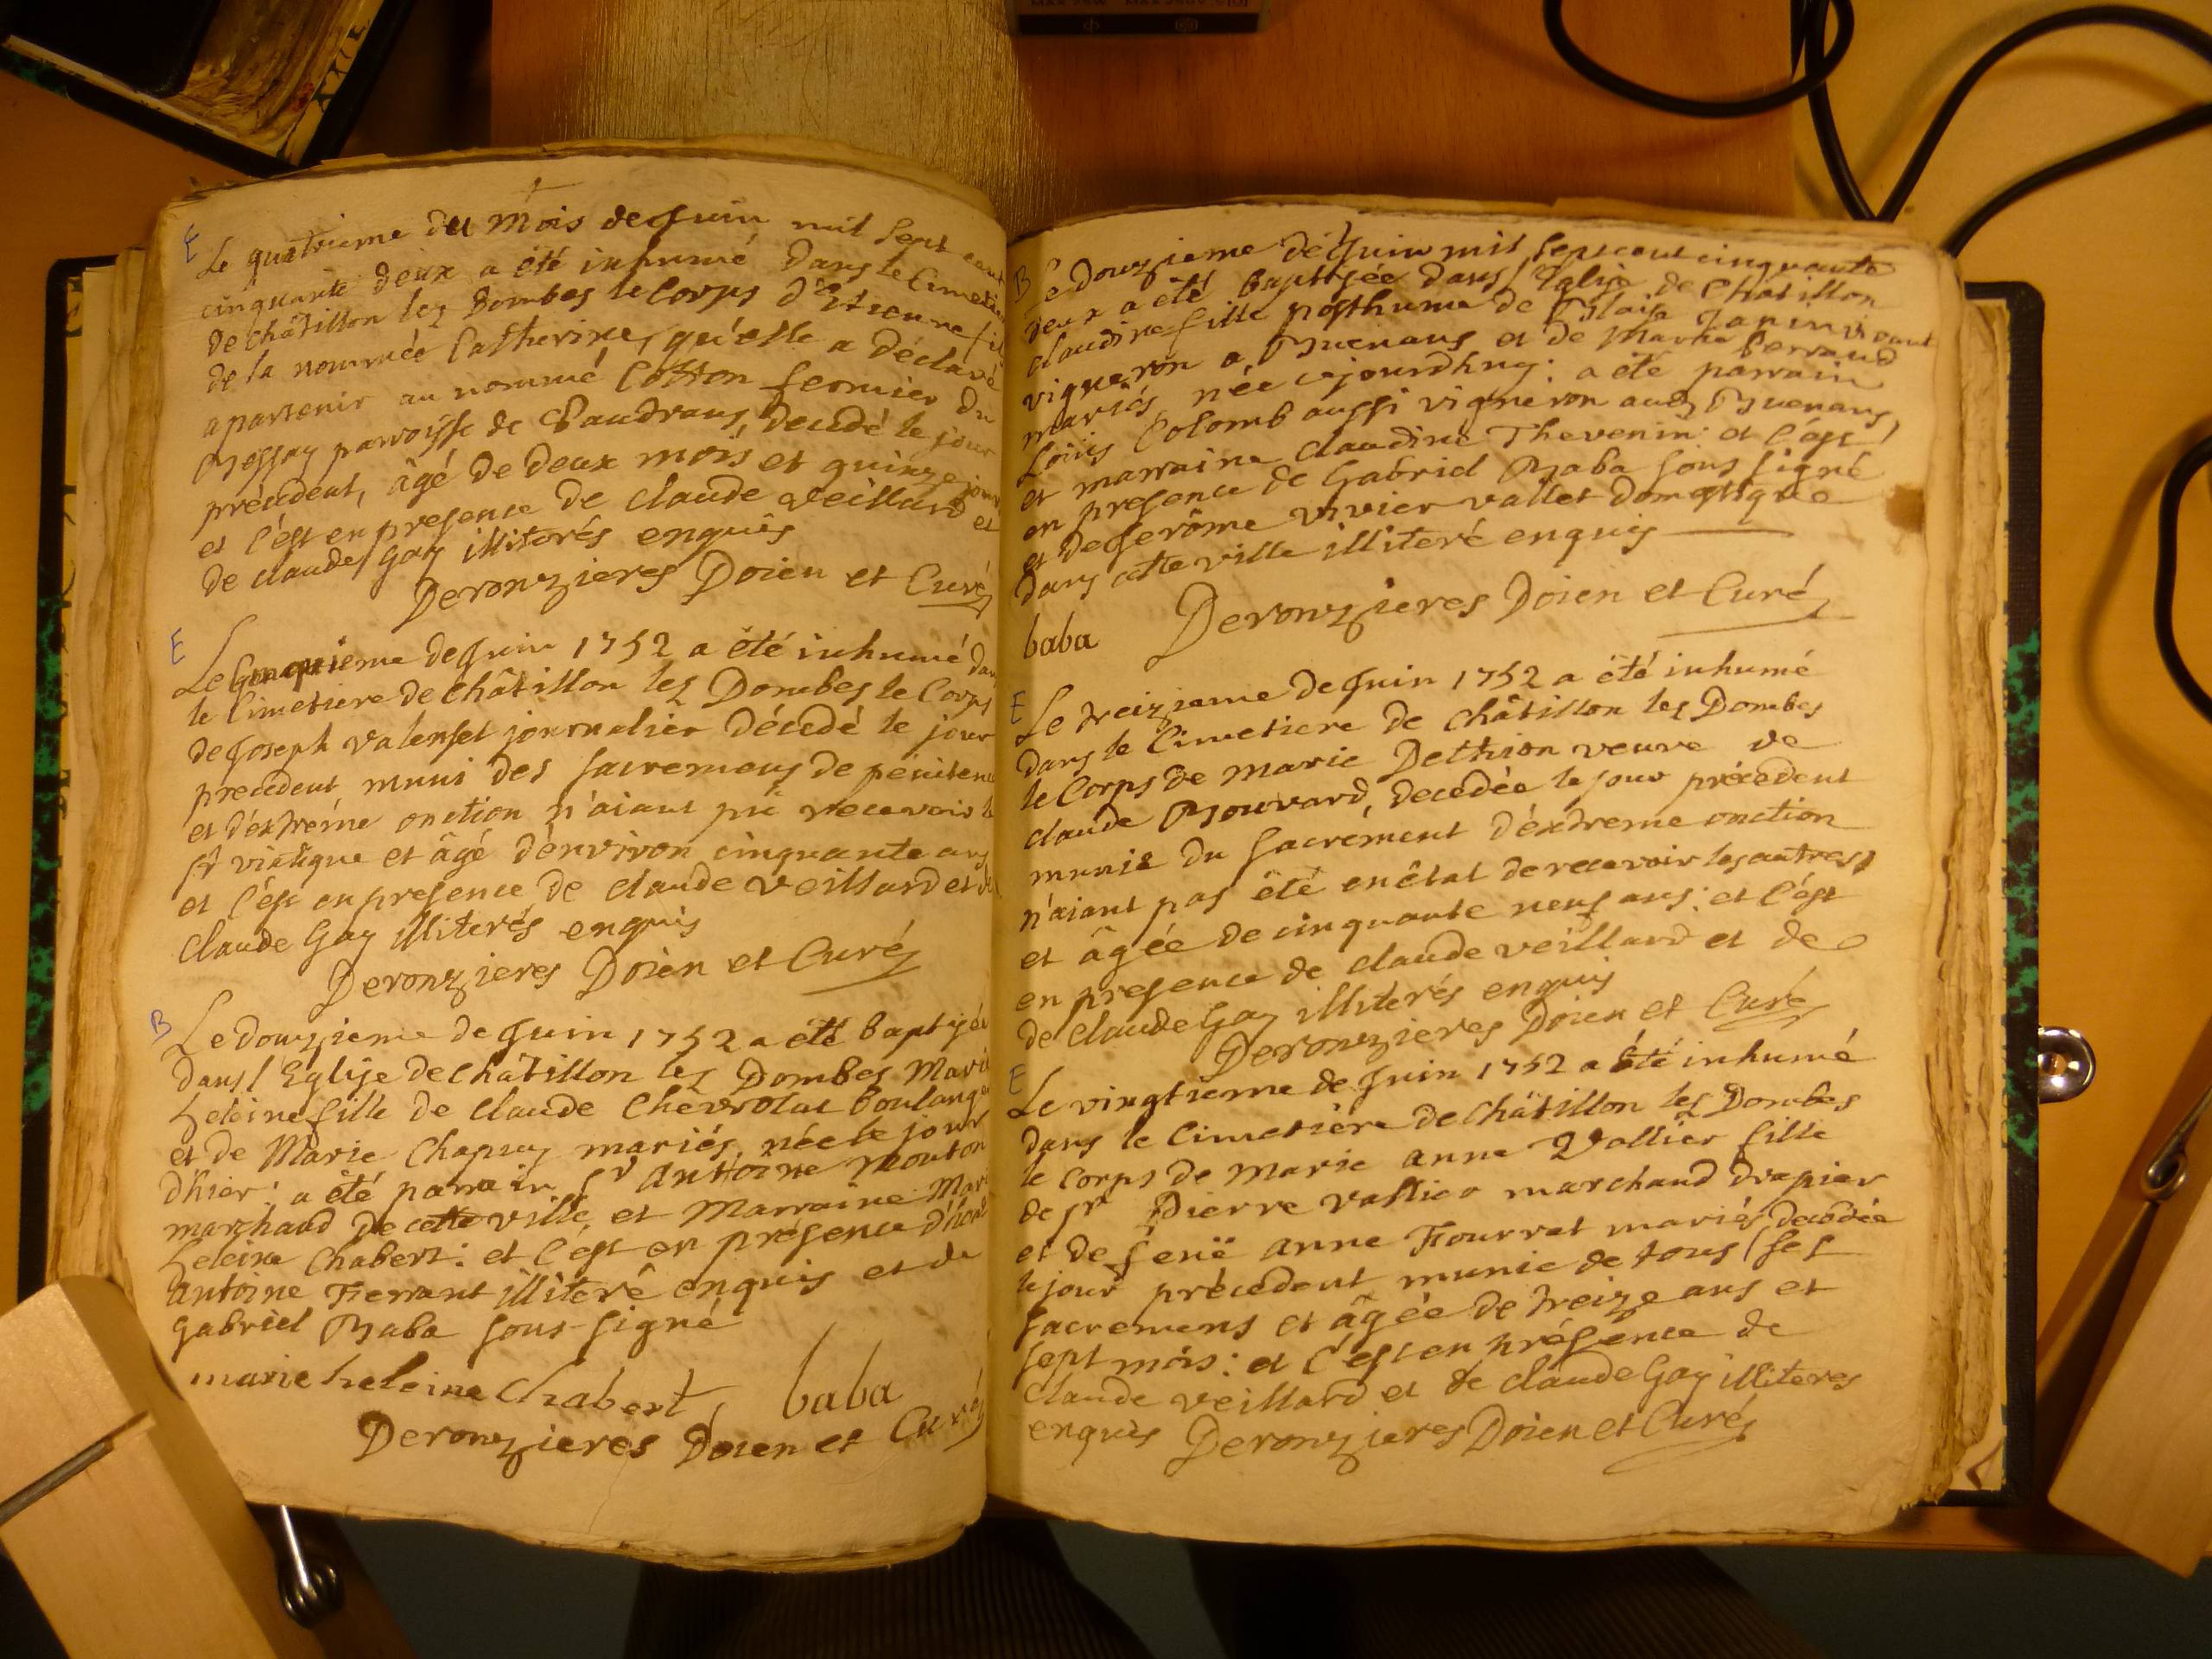 E
Le quatrieme du Mois de Juin mil sept cent
cinquante deux a êté inhumé dans le Cimetiere
de Châtillon les Dombes le Corps d'Etienne fils
de la nommée Catherine, qu'elle a déclaré
apartenir au nommé Cotton fermier du
paroisse de Vaudrans, decédé le jour
précédent, âgé de deux mois et quinze jours
et c'est en presence de claude veillard et
de claude Gay illiterés enquis
Deronzieres Doien et Curé
E
Le Cinquieme de Juin 1752 a êté inhumé dans
le Cimetiere de Châtillon les Dombes le Corps
de Joseph valenset journalier décedé le jour
precedent muni des sacremens de penitence
et d'extrême onction n'aiant pû recevoir le
st viatique et âgé d'environ cinquante ans
et c'est en presence de claude veillard et de
Claude Gay illiterés enquis
Deronzieres Doien et Curé
B
Le douzieme de Juin 1752 a êté baptisée
dans l'Eglise de Châtillon les Dombes Marie
heleine fille de claude Chevrolat boulanger
et de Marie Chapuy mariés, née le jour
d'hier: a êté parrain Sr Antoine Mouton
marchand de cette ville, et Marraine Marie
heleine Chabert: et c'est en présence d'
Antoine Ferrant illiteré enquis et de
Gabriel Baba sous-signé
marie heleine Chabert baba
Deronzieres Doien et Curé
B
Le douzieme de Juin mil sept cent cinquante
deux a êté baptisée dans l'Eglise de Châtillon
claudine fille posthume de Blaise Janin vivant
vigneron a Buenans et de Marie Perraud
mariés, née cejourdhuy: a êté parrain
Loüis Colomb aussi vigneron aud Buenans,
et marraine Claudine Thevenin: et c'est
en presence de Gabriel Baba sous signé
et de Jerôme vivier vallet domestique
dans cette ville illiteré enquis
baba Deronzieres Doien et Curé
E
Le treizieme de Juin 1752 a êté inhumé
dans le Cimetiere de Châtillon les Dombes
le Corps de Marie Dethion veuve de
claude Bouvard, decedée le jour précedent
munie du sacrement d'extreme onction
n'aiant pas êté en êtat de recevoir les autres,
et âgée de cinquante neuf ans: et c'est
en presence de claude veillard et de
de Claude Gay illiterés enquis
Deronzieres Doien et Curé
E
Le vingtieme de Juin 1752 a êté inhumé
dans le Cimetiére de Châtillon les Dombes
le Corps de Marie anne Vallier fille
de Sr Pierre vallier marchand drapier
et de feuë anne Fourrat mariés, decedée
le jour précedent munie de tous ses
sacremens et âgée de treize ans et
sept mois: et c'est en présence de
Claude veillard et de claude Gay illiteres
enquis Deronzieres Doien et Curé